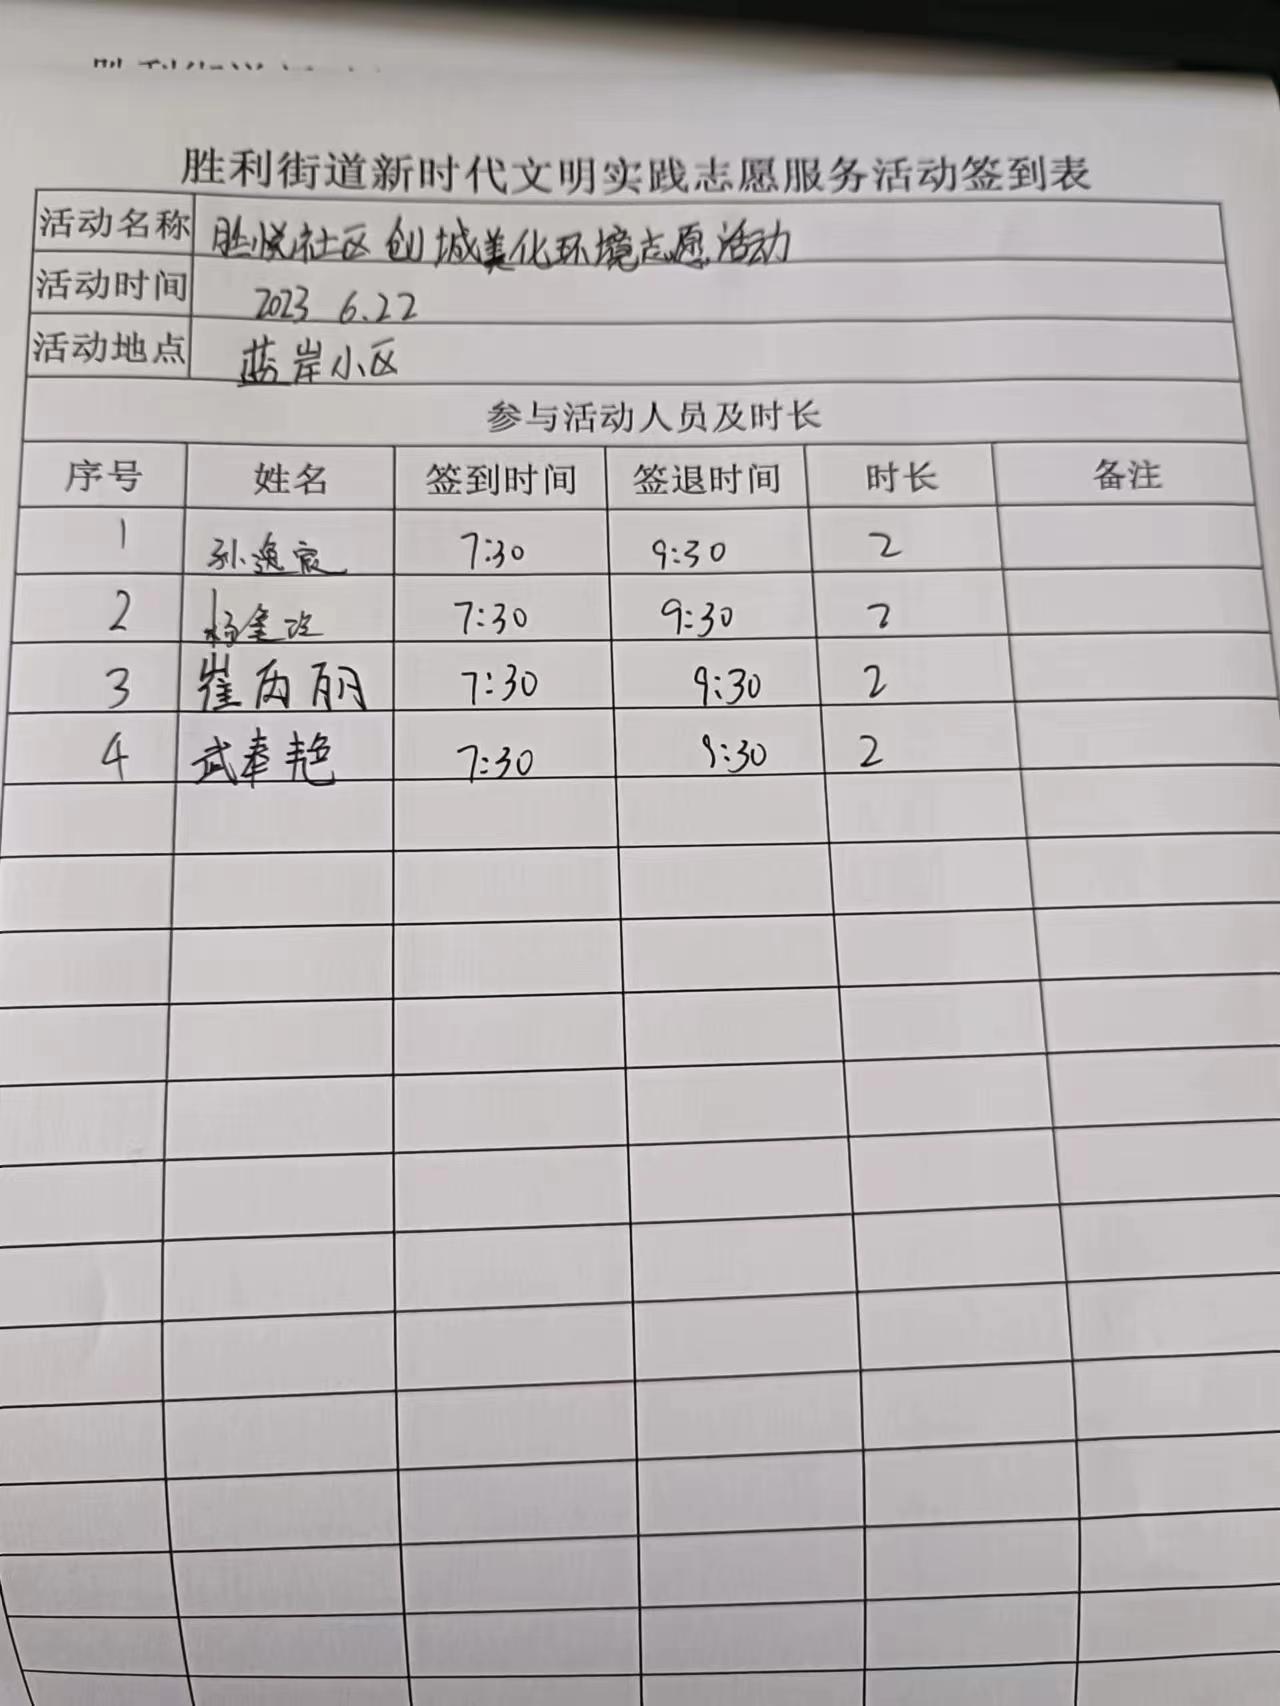 胜利街道新时代文明实践志愿服务活动签到表
活动名称 胜悦社区创城美化环境志愿活动
活动时间 2023 6.22
活动地点 蓝岸小区
参与活动人员及时长
序号 姓名 签到时间 签退时间 时长 备注
1 孙逸宸 7:30 9:30 2
2 杨 7:30 9:30 2
3 崔丙丽 7:30 9:30 2
4 武奉艳 7:30 9:30 2